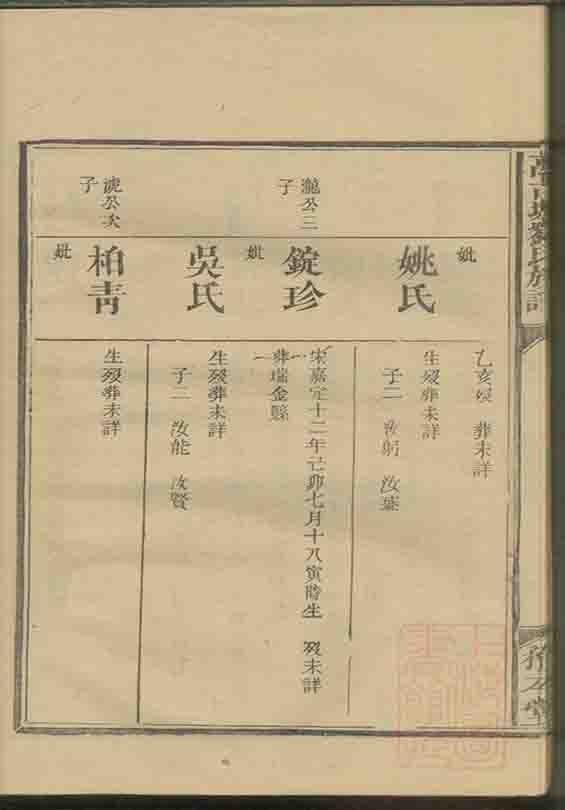 乙亥歿 葬未詳
妣 姚氏
生歿葬未詳
子二 汝躬 汝葉
瀧公三子
錠珍
宋嘉定十二年己卯七月十八寅時生 歿未詳
葬瑞金縣
妣 吳氏
生歿葬未詳
子二 汝能 汝賢
公次子
柏青
生歿葬未詳
妣
劉氏族譜